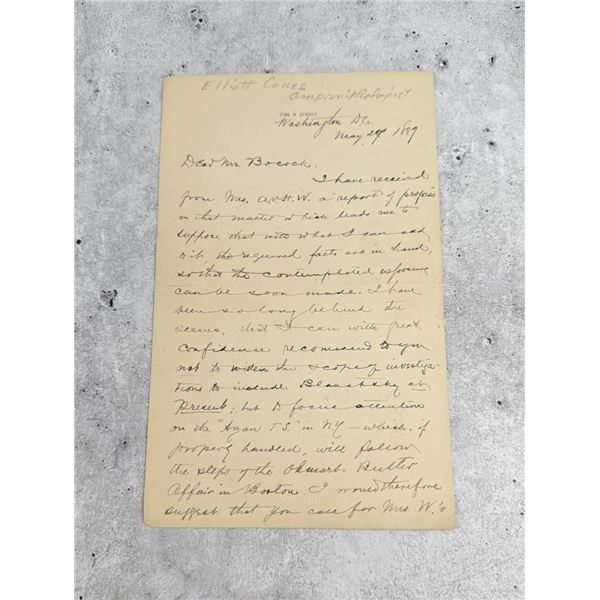 Elliott Coues
am. ornithologist
1726 N STREET
Washington, D.C.
May 29, 1889
Dear Mr. Bocock,
I have received
from Mrs. a report of progress
in that matter which leads me to
suppose that with what I can add
to it, the required facts are in hand,
so that the contemplated exposure
can be soon made. I have
been so long behind the
scenes, that I can with great
confidence recommend to you
not to widen the scope of investiga-
tions to include Blavatsky at
present; but to focus attention
on the "Aryan T.S." in NY – which, if
properly handled, will follow
the steps of the Ohmart-Butler
Affair in Boston. I would therefore
suggest that you care for Mrs W.'s